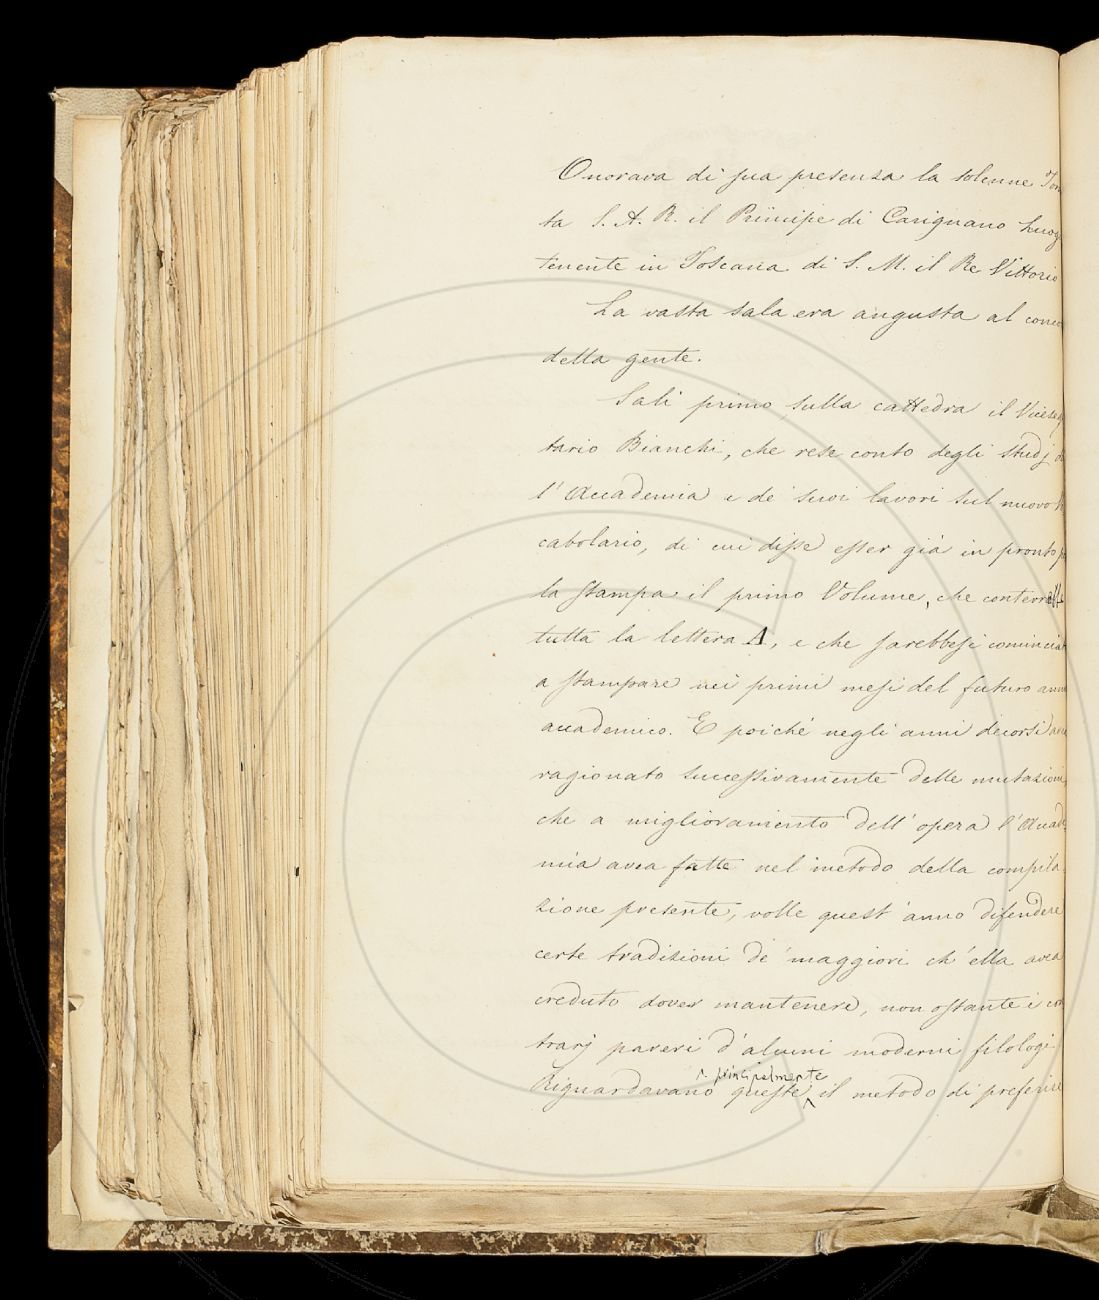 Onorava di sua presenza la solenne Torn
ta S. A. R. il Principe di Carignano Luog
tenente in Toscana di S. M. il Re Vittorio
La vasta sala era angusta al conco
della gente.
Salì primo sulla cattedra il Viceseg
tario Bianchi, che rese conto degli studj d
l'Accademia e de' suoi lavori sul nuovo V
cabolario, di cui disse esser già in pronto p
la stampa il primo Volume, che conterrebbe
tutta la lettera A, e che sarebbesi cominciat
a stampare nei primi mesi del futuro ann
accademico. E poiché negli anni decorsi ave
ragionato successivamente delle mutazioni,
che a miglioramento dell'opera l'Accad
mia avea fatte nel metodo della compila
zione presente, volle quest'anno difendere
certe tradizioni de' maggiori ch'ella avea
creduto dover mantenere, non ostante i con
trarj pareri d'alcuni moderni filologi.
principalmente
Riguardavano queste il metodo di preferire